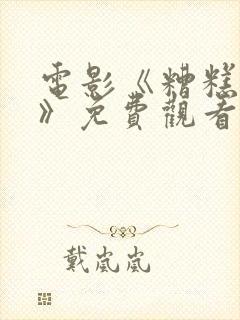 電影《糟糕
》免費觀看
戴嵐嵐